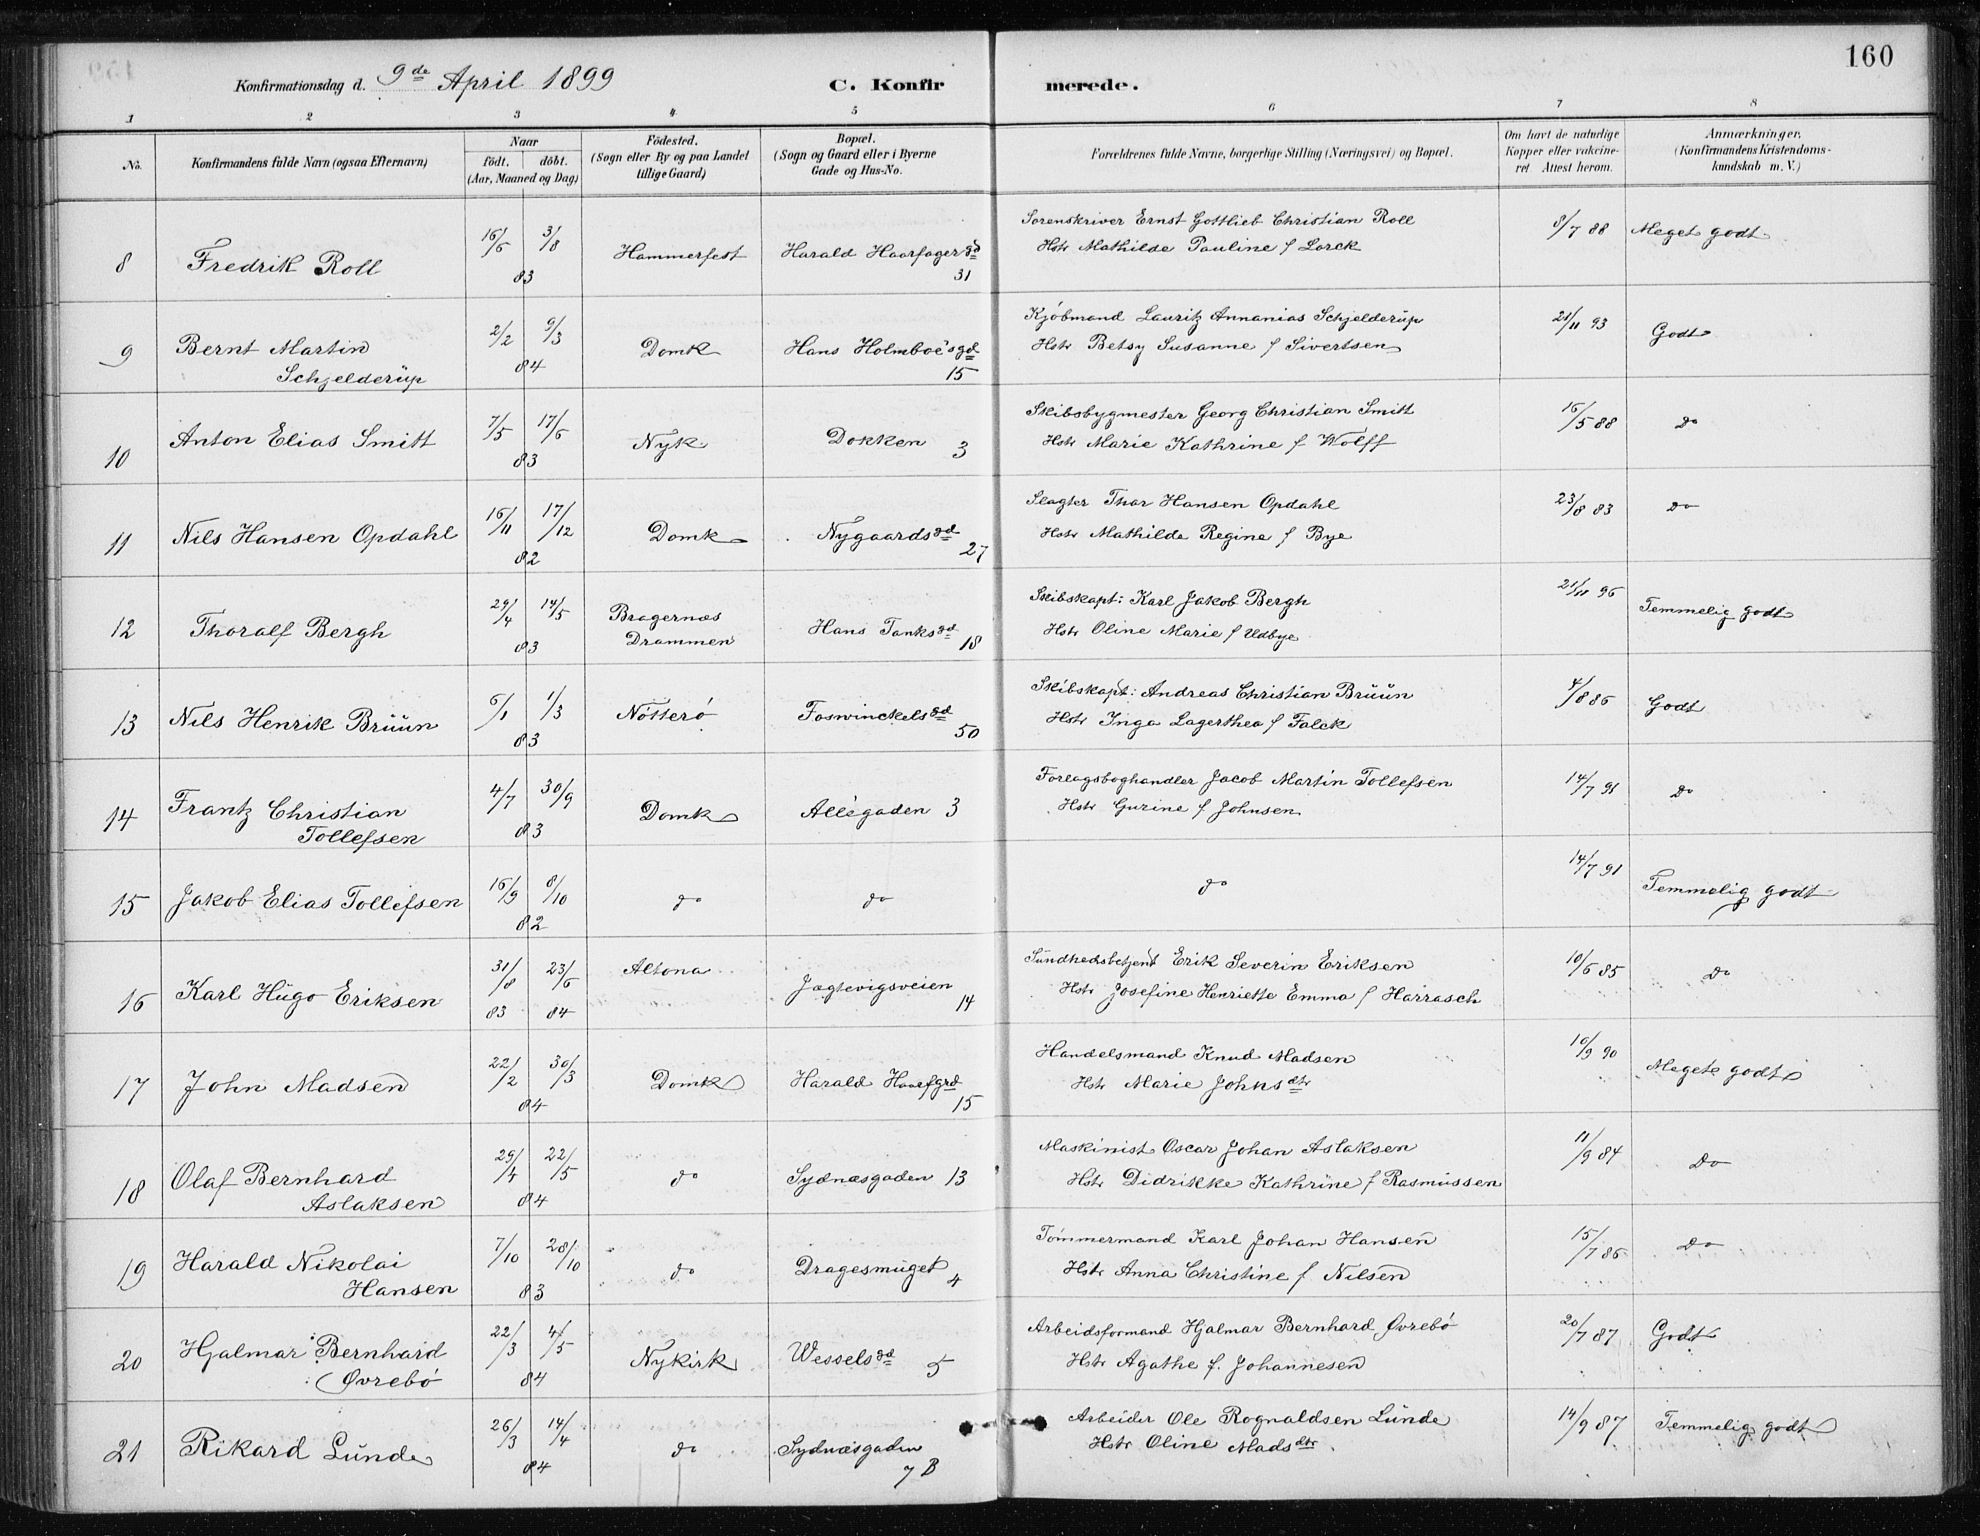 160
Konfirmationsdag d. 9de April 1899 C. Konfirmerede.
1 2 3 4 5 6 7 8
No. Konfirmandens fulde Navn (ogsaa Efternavn) Naar født. døbt. (Aar, Maaned og Dag) Fødested. (Sogn eller By og paa Landet tillige Gaard) Bopæl. (Sogn og Gaard eller i Byerne Gade og Hus-No. Forældrenes fulde Navne, borgerlige Stilling (Næringsvei) og Bopæl. Om havt de naturlige Kopper eller vaccineret Attest herom. Anmærkninger. (Konfirmandens Kristendomskundskab m. V.)
8 Fredrik Roll 16/6 3/8 83 Hammerfest Harald Haarfagergd 31 Sorenskriver Ernst Gottlieb Christian Roll
Hstr Mathilde Pauline f Lorck 8/7 88 Meget godt
9 Bernt Martin Schjelderüp 2/2 9/3 84 Domk Hans Holmboe's gd 15 Kjøbmand Lauritz Annanias Schjelderüp
Hstr Betsy Susanne f Sivertsen 21/11 93 Godt
10 Anton Elias Smitt 7/5 17/6 83 Nyk Dokken 3 Skibsbygmester Georg Christian Smitt
Hstr Marie Kathrine f Wolff 16/5 88 do
11 Nils Hansen Opdahl 16/11 17/12 82 Domk Nygaardsgd 27 Slagter Thor Hansen Opdahl
Hstr Mathilde Regine f Bye 23/8 83 do
12 Thoralf Bergh 29/4 14/5 83 Bragernæs Drammen Hans Tanksgd 18 Skibskapt: Karl Jakob Bergh
Hstr Oline Marie f Udbye 21/11 96 Temmelig godt
13 Nils Henrik Brüün 6/1 1/3 83 Nøtterø Foswinckelsgd 50 Skibskapt: Andreas Christian Brüün
Hstr Inga Lagerthea f Falck 4/8 86 Godt
14 Frantz Christian Tollefsen 4/7 30/9 83 Domk Allégaden 3 Forlagsboghandler Jacob Martin Tollefsen
Hstr Gurine f Johnsen 14/7 91 do
15 Jakob Elias Tollefsen 16/9 8/10 82 do do do 14/7 91 Temmelig godt
16 Karl Hügo Eriksen 31/8 83 23/6 84 Altona Jægtevigsveien 14 Sündhedsbetjent Erik Severin Eriksen
Hstr Josefine Henriette Emma f Harrasch 10/6 85 do
17 John Madsen 22/2 30/3 84 Domk Harald Haarfgrd 15 Handelsmand Knud Madsen
Hstr Marie Johnsdtr 10/9 90 Meget godt
18 Olaf Bernhard Aslaksen 29/4 22/5 84 do Sydnæsgaden 13 Maskinist Oscar Johan Aslaksen
Hstr Didrikke Kathrine f Rasmüssen 11/9 84 do
19 Harald Nikolai Hansen 7/10 28/10 83 do Dragesmuget 4 Tømmermand Karl Johan Hansen
Hstr Anna Christine f Nilsen 15/7 86 do
20 Hjalmar Bernhard Øvrebø 22/3 4/5 84 Nykirk Wesselsgd 5 Arbeidsformand Hjalmar Bernhard Øvrebø
Hstr Agathe f. Johannesen 20/7 87 Godt
21 Rikard Lünde 26/3 14/4 84 do Sydnæsgaden 7 B Arbeider Ole Rognaldsen Lünde
Hstr Oline Madsdtr. 14/9 87 Temmelig godt